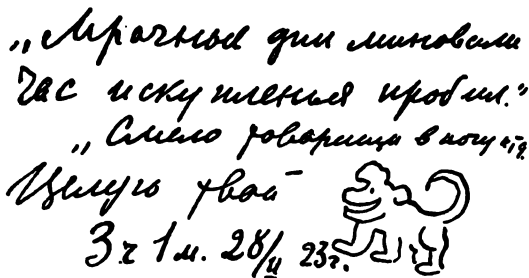 „Мрачные дни миновали
Час искупленья пробил."
„Смело товарищи в ногу и т.д.
Целую твой
3 ч 1 м. 28/II 23 г.